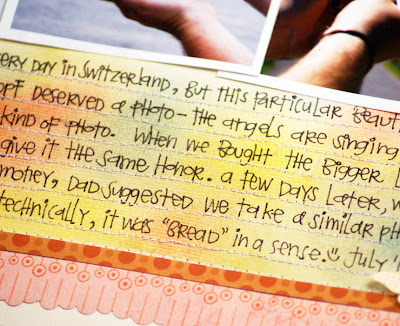 ERY DAY IN SWITZERLAND, BUT THIS PARTICULAR BEAUT
OPF DESERVED A PHOTO - THE ANGELS ARE SINGING
KIND OF PHOTO. WHEN WE BOUGHT THE BIGGER
GIVE IT THE SAME HONOR. A FEW DAYS LATER, W
MONEY, DAD SUGGESTED WE TAKE A SIMILAR PH
TECHNICALLY, IT WAS "BREAD" IN A SENSE. JULY